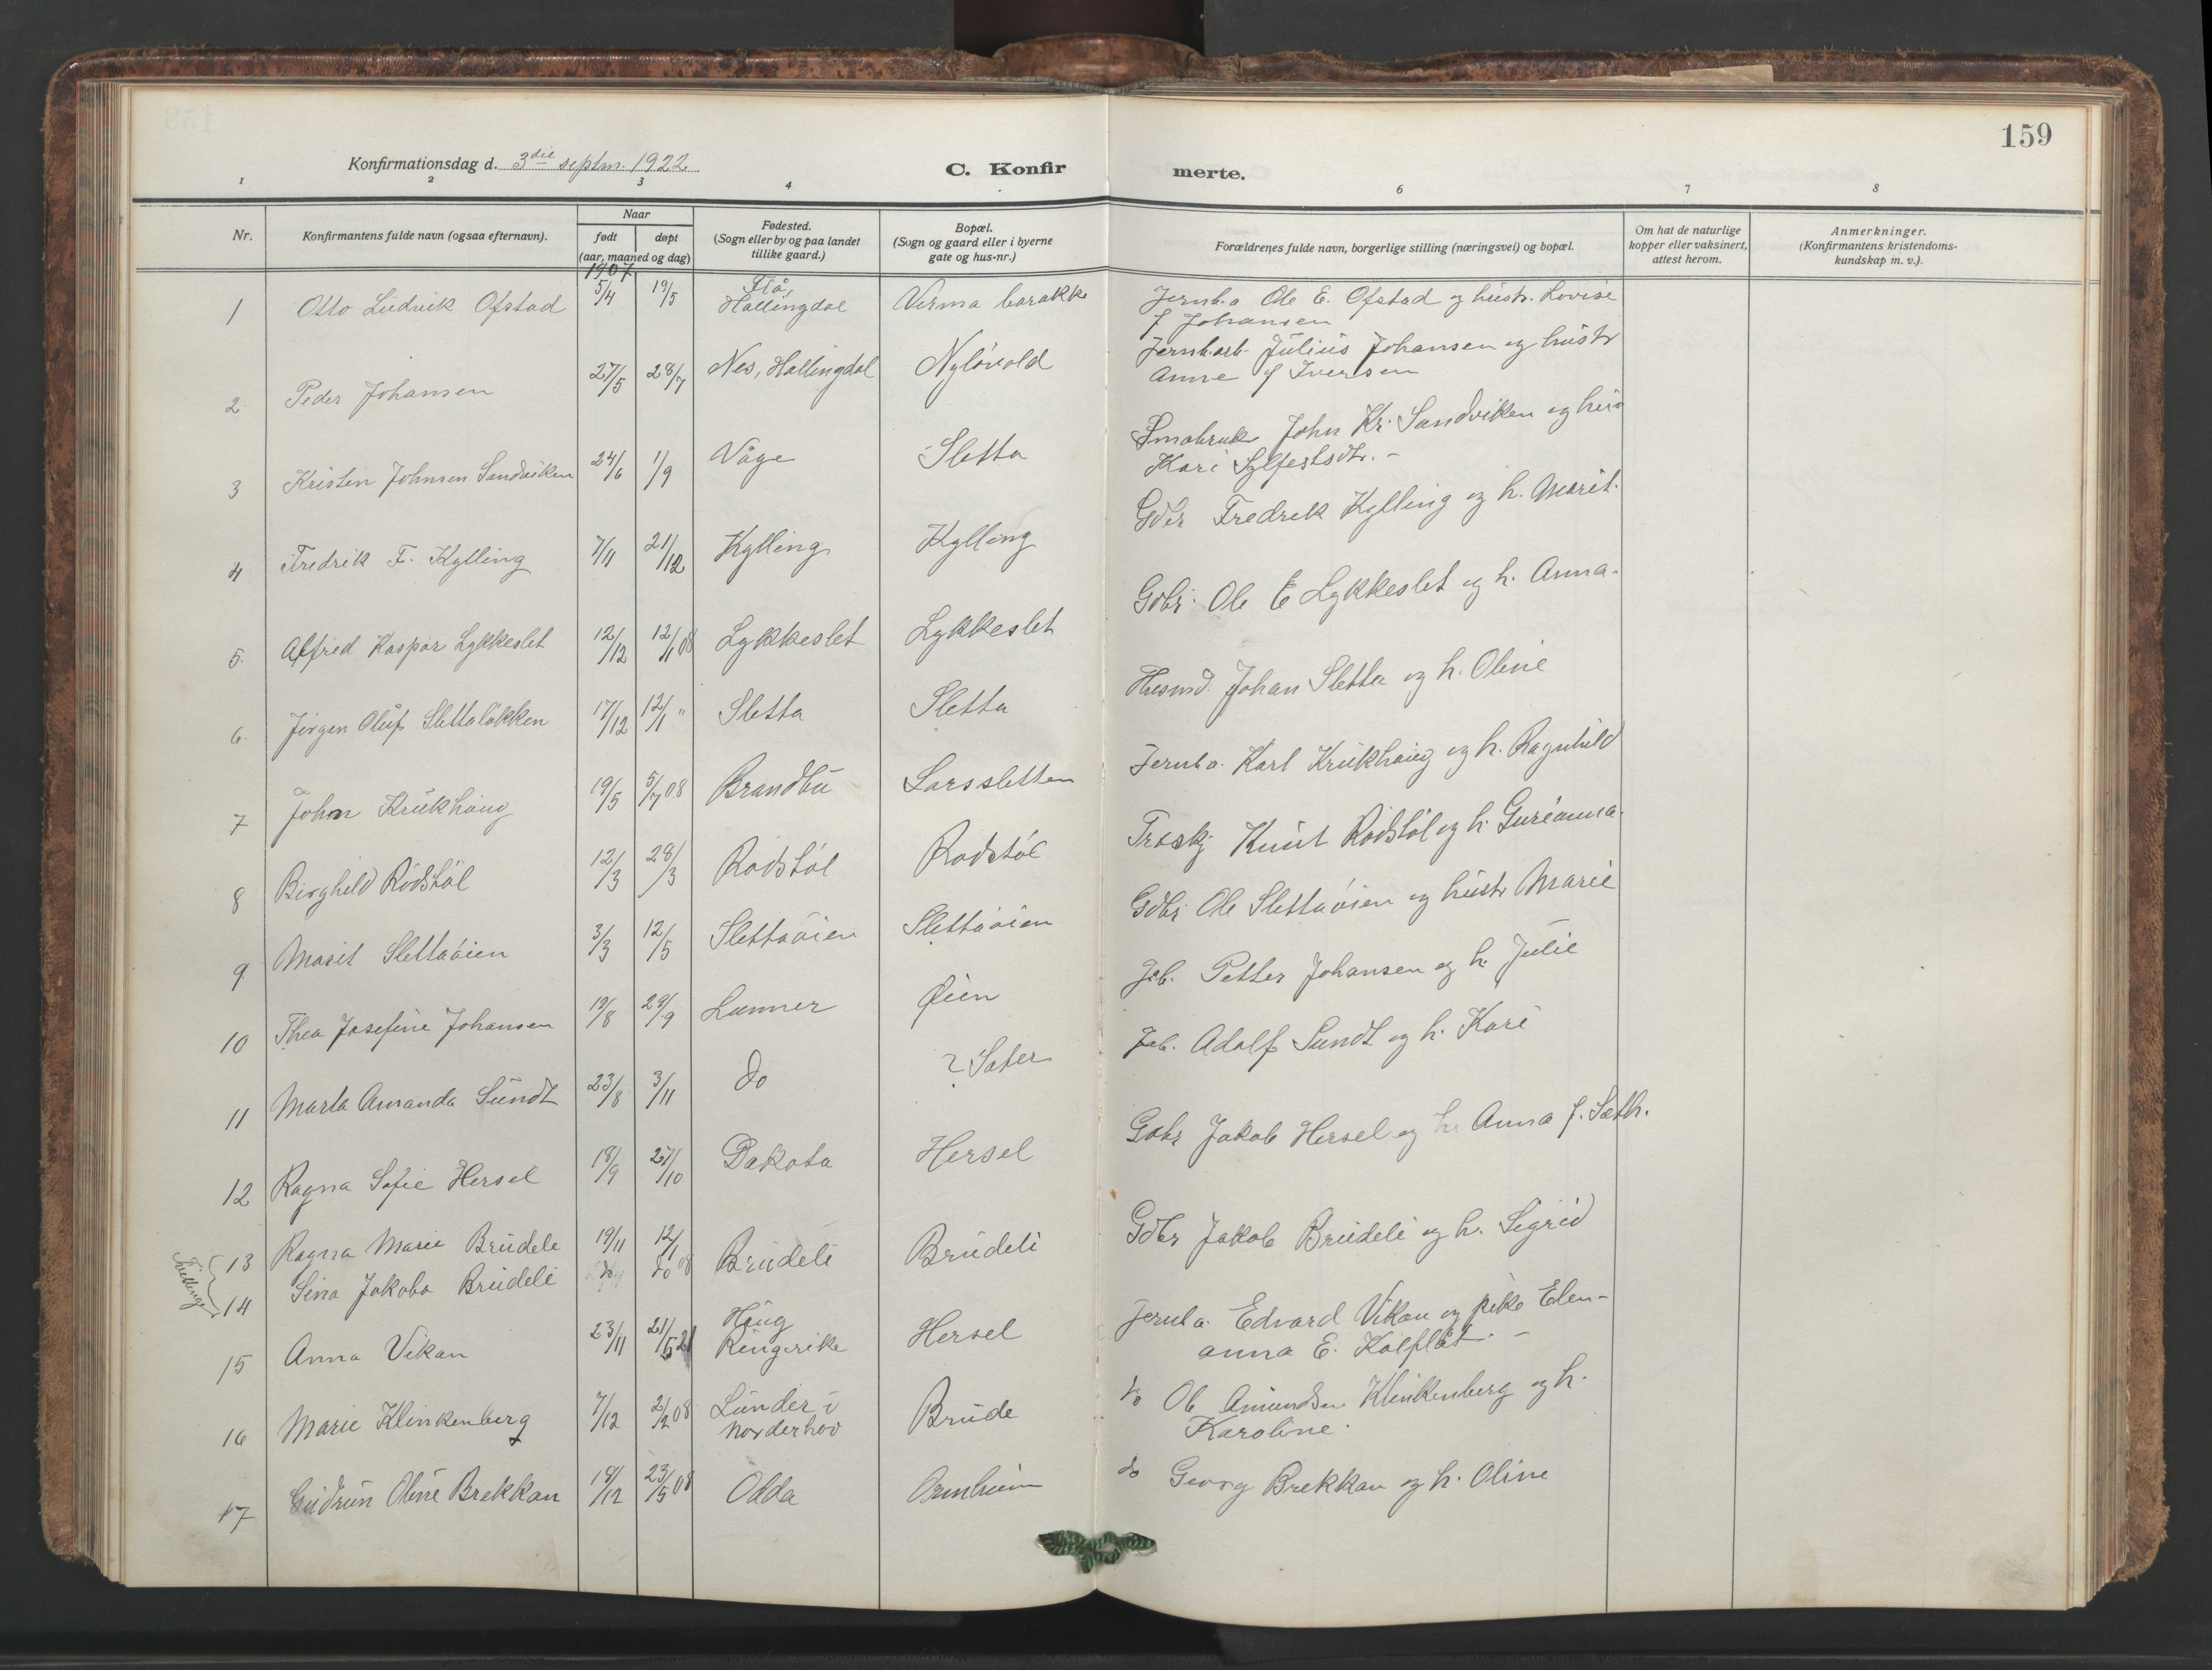 159
Konfirmationsdag d. 3die septm. 1922
C. Konfirmerte.
1 2 3 4 6 7 8
Nr. Konfirmantens fulde navn (ogsaa efternavn). Naar født døpt (aar, maaned og dag) Fødested. (Sogn eller by og paa landet tillike gaard.) Bopæl. (Sogn og gaard eller i byerne gate og hus-nr.) Forældrenes fulde navn, borgerlige stilling (næringsvei) og bopæl. Om hat de naturlige kopper eller vaksinert, attest herom. Anmerkninger. (Konfirmantens kristendomskundskap m. v.).
1907
1 Otto Ludvik Ofstad 5/4 19/5 Flå, Hallingdal Verma barakke Jernb.a Ole E. Ofstad og hustr. Lovise
f Johansen
2 Peder Johansen 27/5 28/7 Nes, Hallingdal Nylövold Jernb.arb. Julius Johansen og hustr
Anne f Iversen
3 Kristen Johnsen Sandviken 24/6 1/9 Våge Sletta Småbruk John Kr. Sandviken og hus
Kari Sylfestsdtr. -
4 Fredrik F. Kylling 7/11 21/12 Kylling Kylling Gbr Fredrek Kylling og h. Marit.
5. Alfred Kaspar Lykkeslet 12/12 12/1 08 Lykkeslet Lykkeslet Gdbr. Ole E Lykkeslet og h. Anna.
6. Jörgen Oluf Slettalökken 17/12 12/1 " Sletta Sletta Husmd. Johan Sletta og h. Oline
7 John Krukhaug 19/5 5/7 08 Brandbu Larssletten Jernb.a. Karl Krukhaug og h. Ragnhild
8 Borghild Rödstöl 12/3 28/3 Rödstöl Rödstöl Træskj Knut Rödstöl og h. Gurianna.
9 Marit Slettaöien 3/3 12/5 Slettaöien Slettaöien Gdbr. Ole Slettaöien og hustr Marie
10 Thea Josefine Johansen 19/8 29/9 Lunner Øien Jab. Petter Johansen og h. Julie
11 Marta Amanda Sundt 23/8 3/11 do ? Sæter Jab. Adolf Sundt og h. Kari
12 Ragna Sofie Hersel 18/9 27/10 Dakota Hersel Gdbr Jakob Hersel og h. Anna f. Sæth.
13 Ragna Marie Brudeli 19/11 12/1 08 Brudeli Brudeli Gdbr Jakob Brudeli og h. Sigrid
Tvillinger
14 Sina Jakoba Brudeli do do
15 Anna Vikan 23/11 21/5 21 Haug Ringerike Hersel Jernb.a. Edvard Vikan og pike Elen-
anna E. Kalflåt. -
16 Marie Klinkenberg 7/12 2/2 08 Lunder i Norderhov Brude do Ole Amundsen Klinkenberg og h.
Karoline.
17 Gudrun Oline Brekkan 18/12 23/5 08 Odda Ormheim do Georg Brekkan og h. Oline